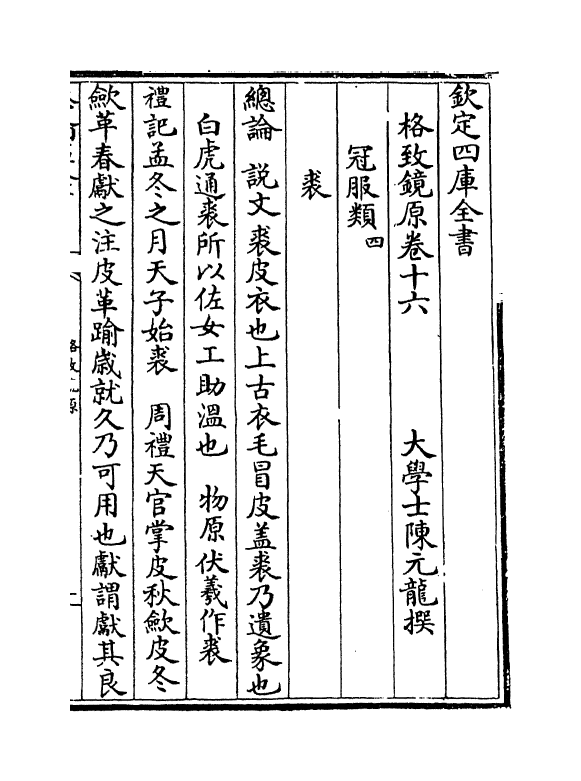 欽定四庫全書
格致鏡原卷十六　大學士陳元龍撰
冠服類四
裘
總論　說文裘皮衣也上古衣毛冒皮盖裘乃遺象也
白虎通裘所以佐女工助溫也　物原伏羲作裘
禮記孟冬之月天子始裘　周禮天官掌皮秋歛皮冬
歛革春獻之注皮革踰歲就久乃可用也獻謂獻其良